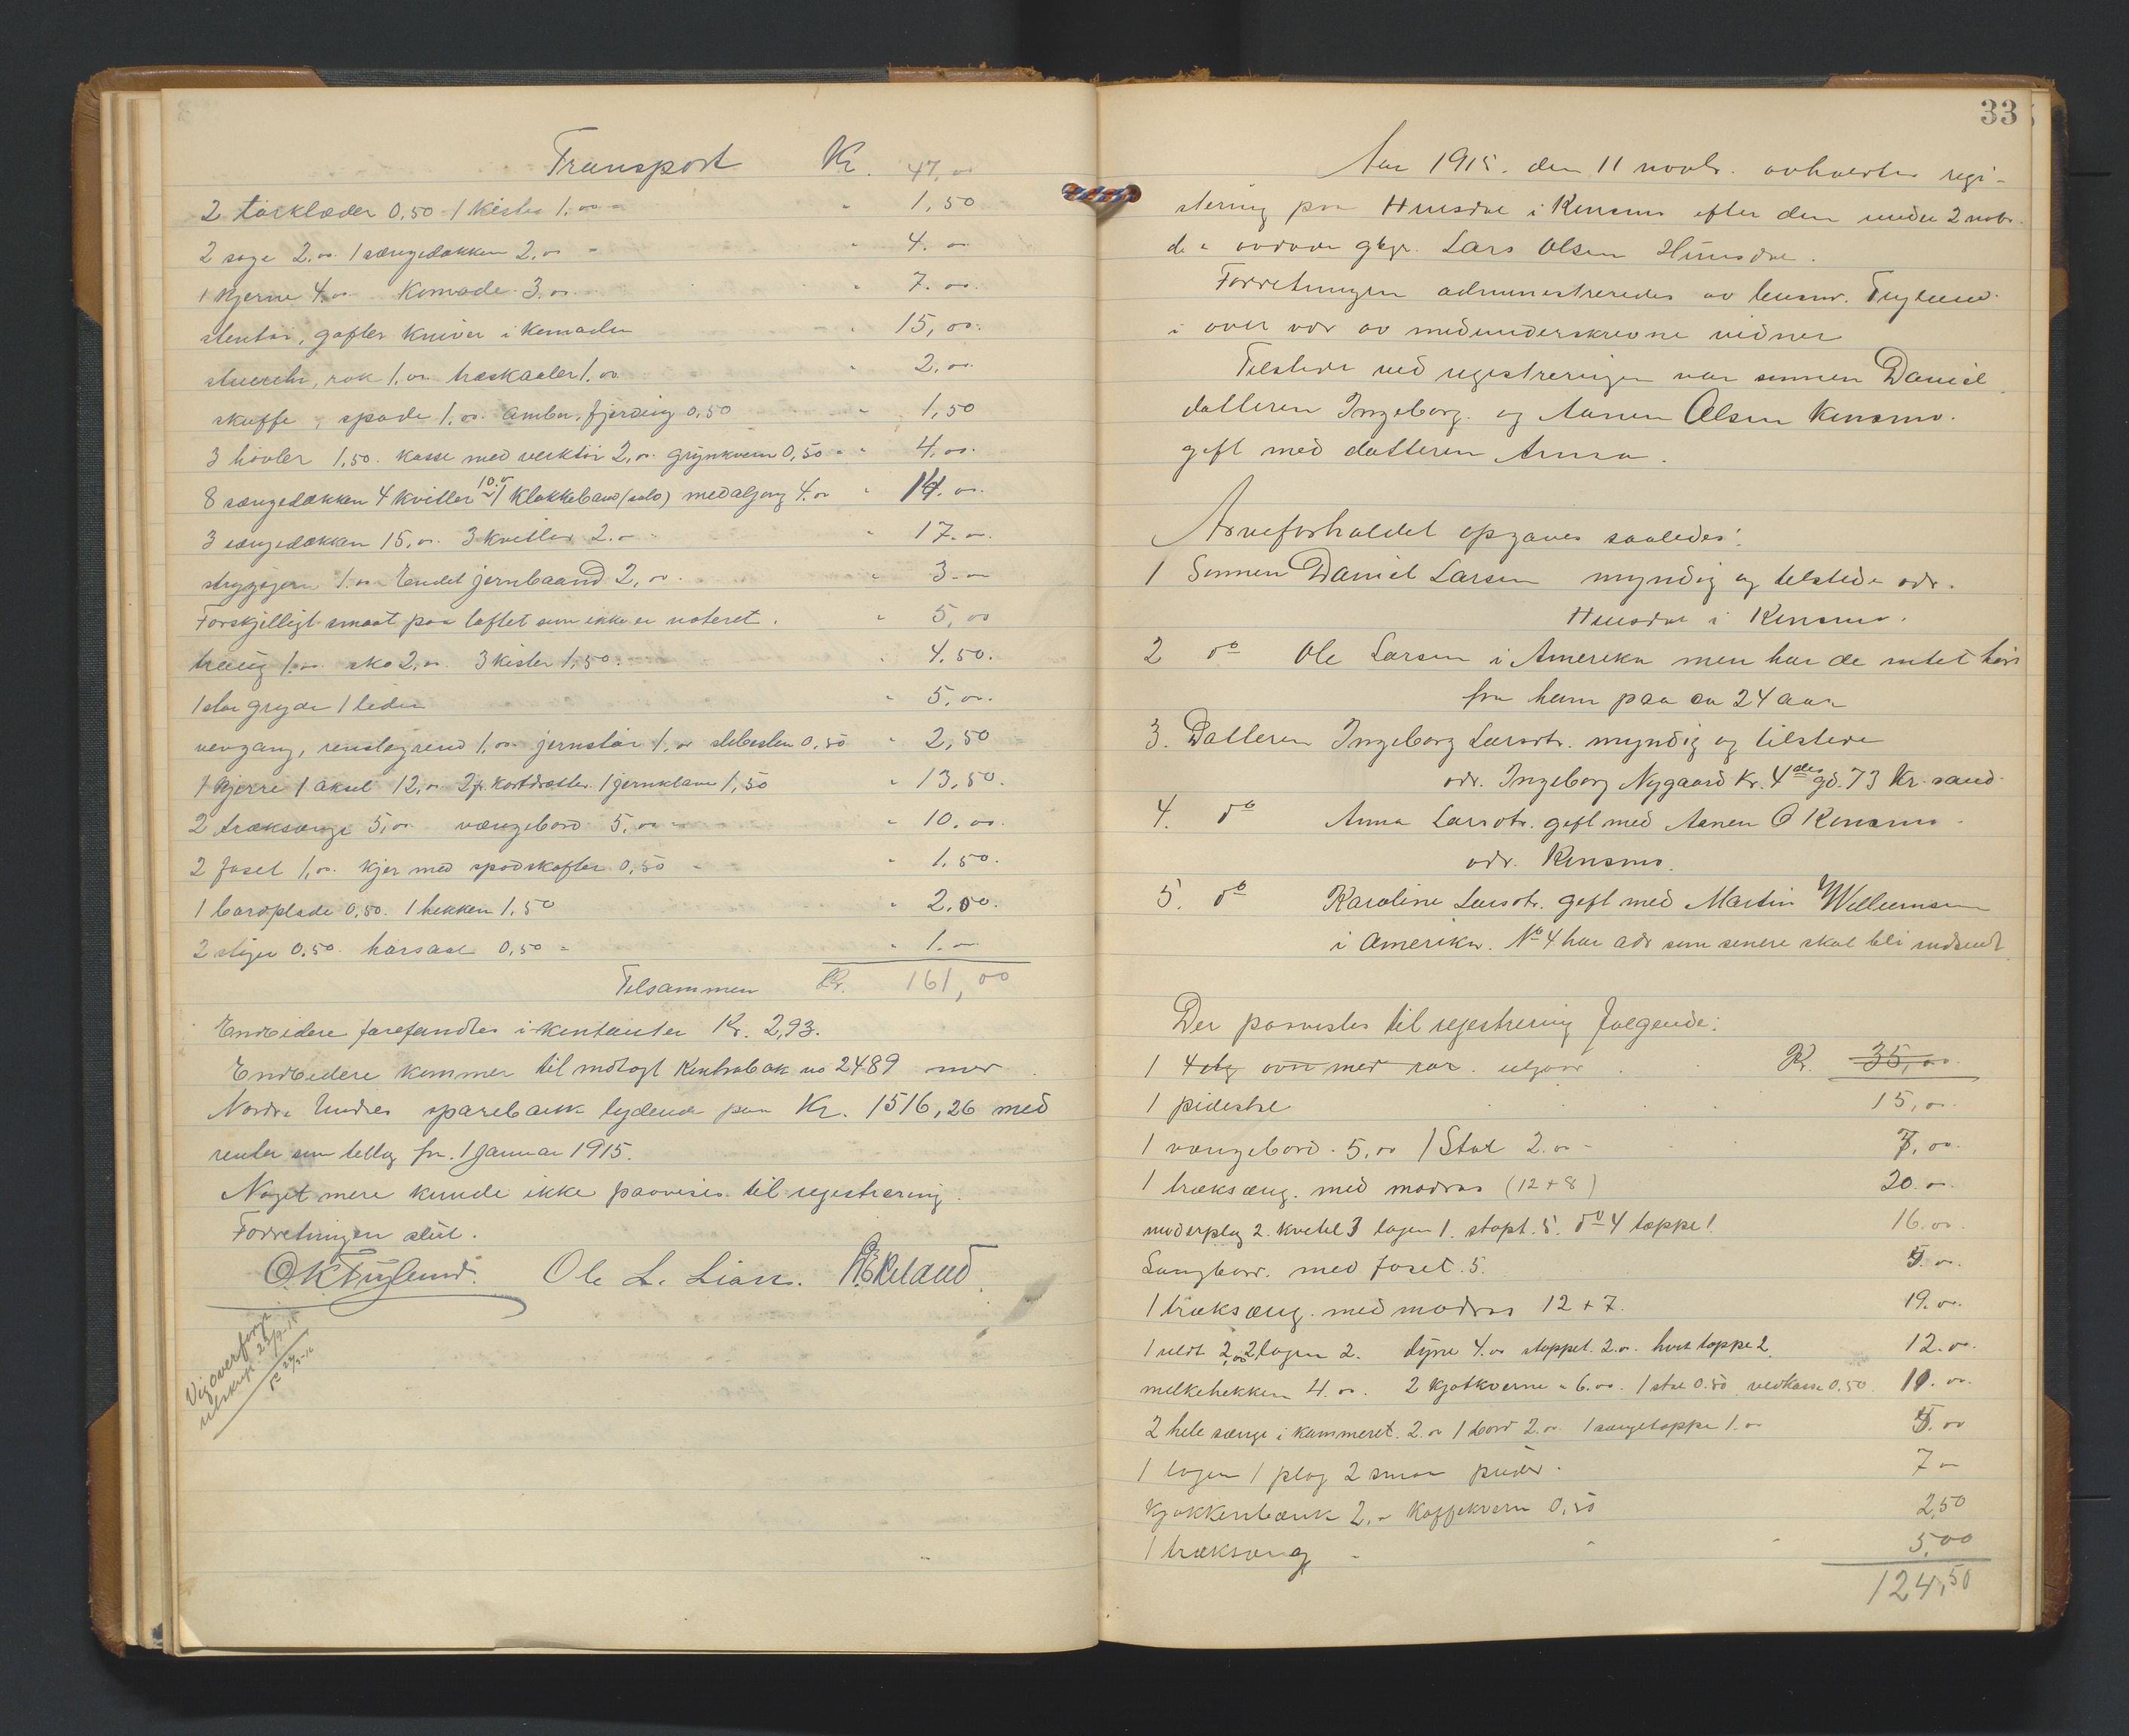 Transport Kr. 47,00
2 törklæder 0,50 1 kiste 1.00 " 1,50
2 sage 2.00. 1 sængedækken 2,00 " 4.00
1 kjerne 4.00 Komode 3.00. " 7.00.
stentöi, gafler kniver i komoden " 15,00.
stueuhr, rok 1.00 træskaaler 1.00 " 2,00.
skuffe, spade 1.00. ambar, fjerding 0,50 " 1,50
3 hövler 1,50. kasse med verktöi 2,00. grynkvern 0,50 " 4.00.
8 sængedækken 4 kvitler 10.00 1 klokkebaand (sölv) medaljong 4.00 " 14.00.
3 sængedækken 15,00. 3 kvitler 2.00 " 17.00.
strygejern 1.00 Endel jernbaand 2,00. " 3.00
Forskjelligt smaat paa loftet som ikke er noteret. " 5,00
traug 1.00 sko 2,00. 3 kister 1,50. " 4.50.
1 stor gryde 1 liden " 5,00.
vevgang, renstegreid 1,00. jernstör 1,00 slibesten 0,50 " 2,50
1 kjerre 1 aksel 12,00 2 jernklave 1,50 " 13,50.
2 træksænge 5,00 vængebord 5,00 " 10.00.
2 foset 1,00. kjer med spodskafter 0,50 " 1.50.
1 bordplade 0,50. 1 hekken 1,50 " 2,00.
2 stiger 0,50. hörsaal 0,50 " 1.00
Tilsammen Kr. 161,00
Endvidere forefandtes i kontanter Kr. 2,93.
Endvidere kommer til motagt Kontrabok no 2489 mer
Nordre Undres sparebank lydende paa Kr. 1516,26 med
renter som tillæg fra 1 Januar 1915.
Noget mere kunde ikke paavises til registrering.
Forretningen slut.
O K Fuglund. Ole L. Lian. Ökland.
utskrift 23/9-15
Do 27/3-16
33
Aar 1915. den 11 novbr. avholdtes regi-
stering paa Hunsdal i Kinsmo efter den under 2 novbr.
d.a. avdøde gbgr. Lars Olsen Hunsdal.
Forretningen administreredes av lensm. Fuglund
i over vær av medunderskrevne vidner
Tilstede ved registreringen var sønnen Daniel
datteren Ingeborg og Aanen Olsen Kinsmo.
gift med datteren Anna.
Arveforholdet opgaves saaledes:
1 Sønnen Daniel Larsen myndig og tilstede adr.
Hunsdal i Kinsmo.
2 do Ole Larsen i Amerika men har de intet hørt
fra ham paa ca 24 aar
3. Datteren Ingeborg Larsdtr. myndig og tilstede
adr. Ingeborg Nygaard Kr. 4des gd. 73 Kr.sand.
4. do Anna Larsdtr. gift med Aanen O Kinsmo
adr. Kinsmo.
5. do Karoline Larsdtr. gift med Martin Willumsen
i Amerika. No 4 har adr som senere skal bli indsendt.
Der paavistes til registrering følgende:
1 4 etg ovn med rør. utgaar Kr. 35,00
1 pidestal 15,00
1 vængebord. 5,00 1 Stol 2.00 7,00.
1 træksæng. med madras (12+8) 20.00.
underplag 2. kvitel 3 lagen 1. stopt. 5. do 4 tæppe 1 16.00.
Langbord. med foset. 5. 5.00.
1 træksæng. med madras 12+7. 19.00.
1 2,00 2 lagen 2. dyne 4.00 stoppet. 2.00. hvit tæppe 2. 12.00.
melkehekken 4.00. 2 kjøtkverne " 6.00. 1 stol 0.50. vedkasse 0.50. 11.00.
2 hele sænge i kammeret. 2.00 1 bord 2.00. 1 sængetæppe 1.00 5.00
1 lagen 1 plag 2 smaa puder. 7 00
Kjøkkenbænk 2.00 kaffekvern 0,50 2,50
1 træksæng " 5,00
124,50